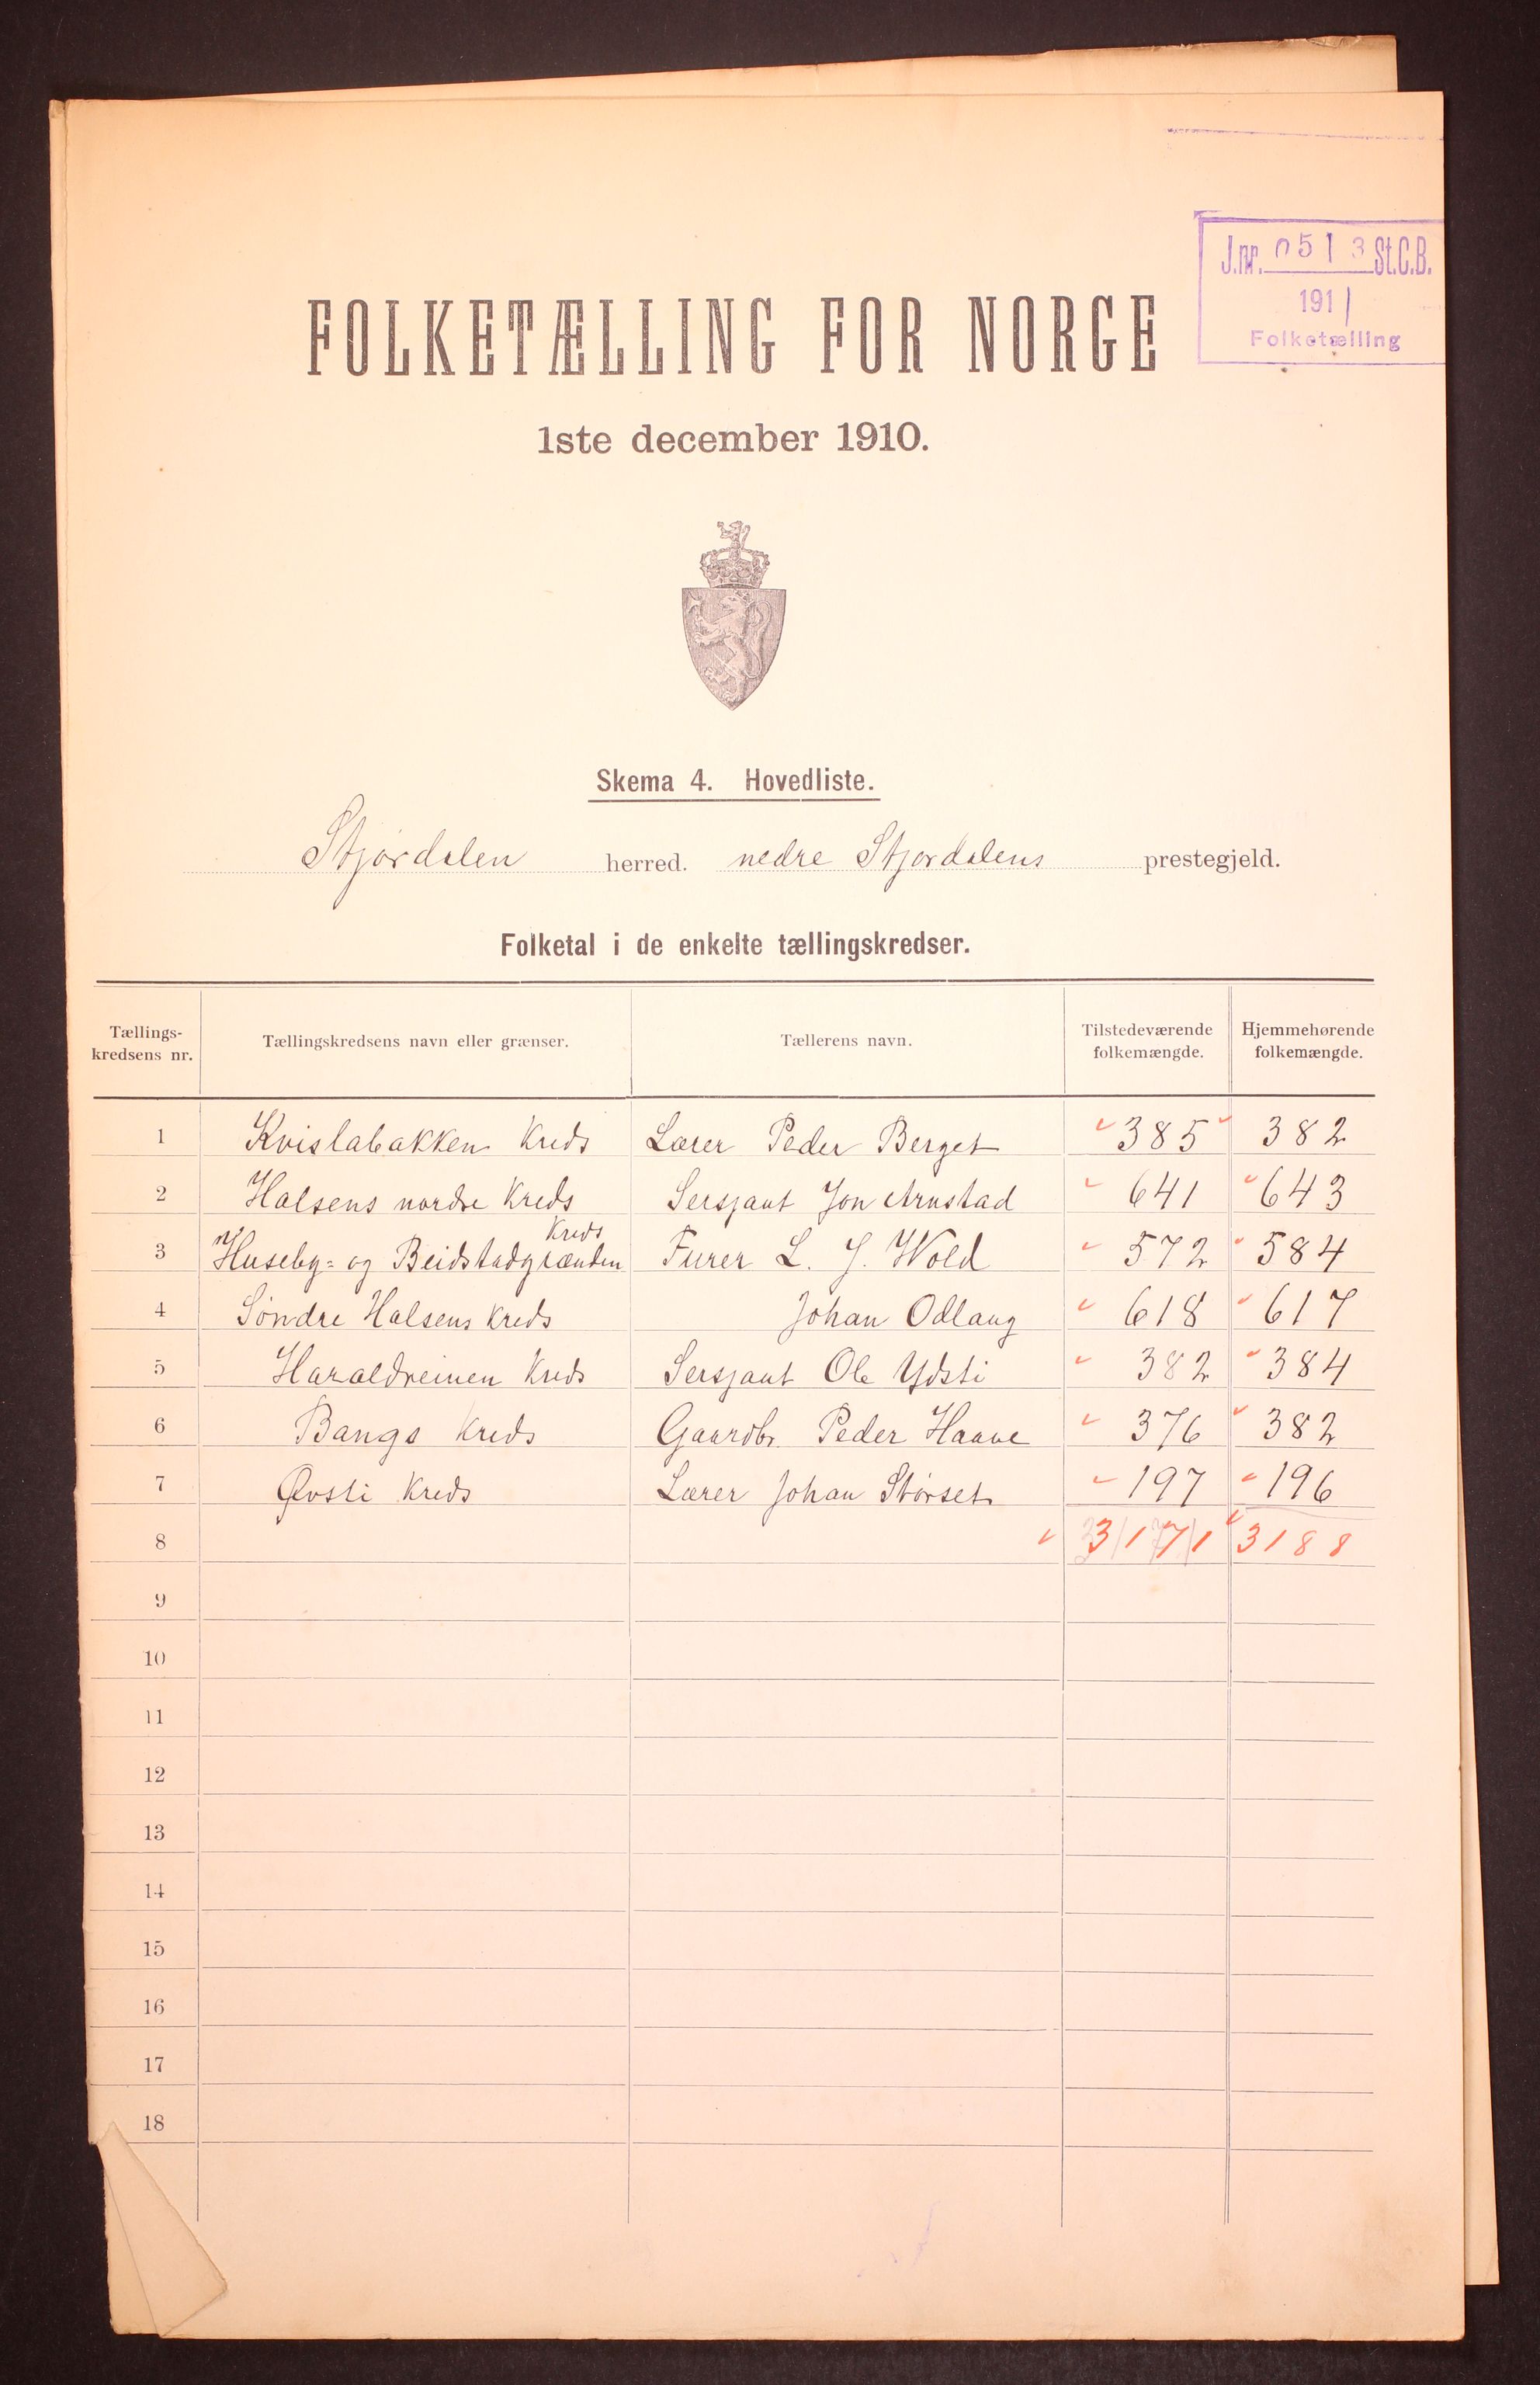 J.nr. 0513 St.C.B.
1911
Folketælling
FOLKETÆLLING FOR NORGE
1ste december 1910.
Skema 4. Hovedliste.
Stjørdalen herred. nedre Stjordalens prestegjeld.
Folketal i de enkelte tællingskredser.
Tællings-kredsens nr. Tællingskredsens navn eller grænser. Tællerens navn. Tilstedeværende folkemængde. Hjemmehørende folkemængde.
1 Kvislabakken Kreds Lærer Peder Berget 385 382
2 Halsens nordre Kreds Sersjant Jon Arnstad 641 643
3 Huseby- og Beidstadgrænden Kreds Furer L. J. Wold 572 584
4 Søndre Halsens Kreds Johan Odlaug 618 617
5 Haraldreinen Kreds Sersjant Ole Ydsti 382 384
6 Bangs Kreds Gaardbr. Peder Haave 376 382
7 Øvsti Kreds Lærer Johan Størset 197 196
8 3171 3188
9
10
11
12
13
14
15
16
17
18